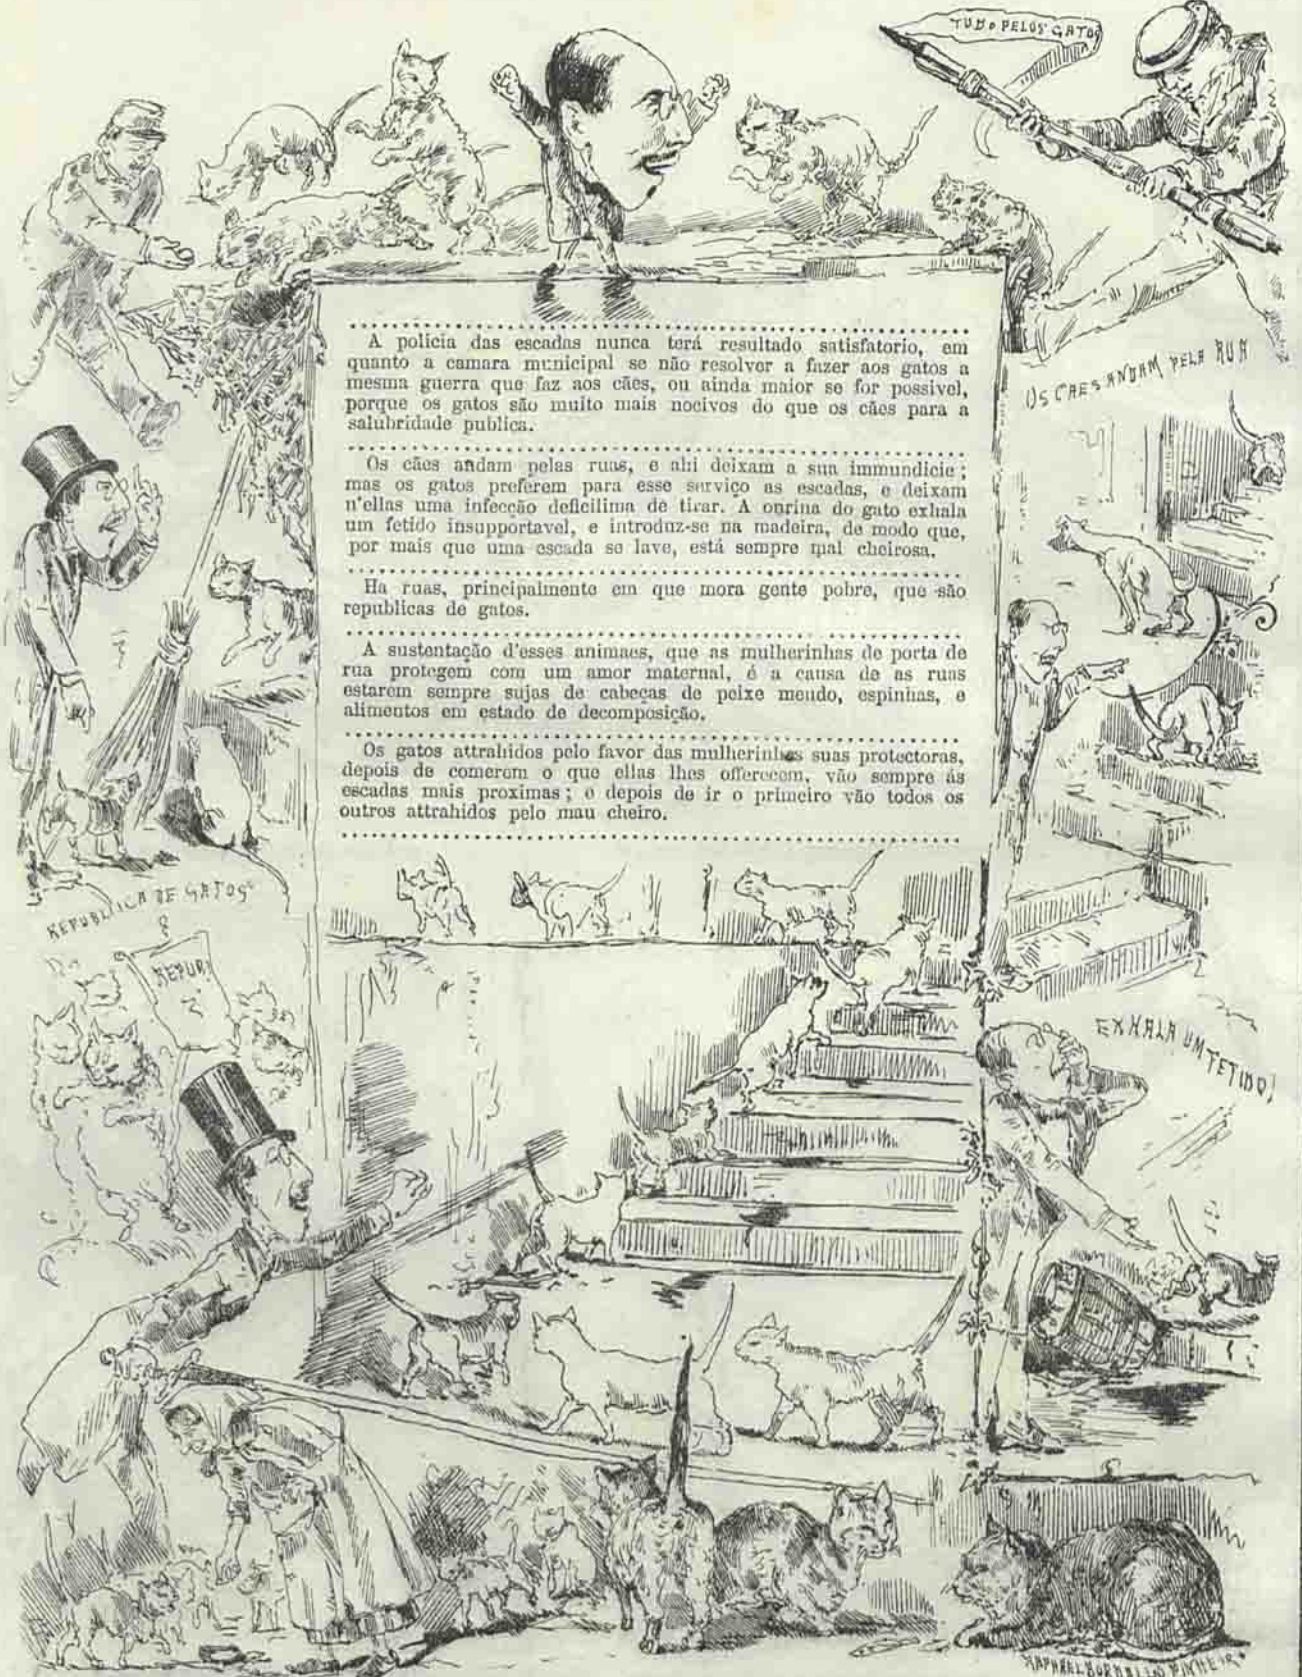 TUDO PELOS GATOS
A policia das escadas nunca terá resultado satisfatorio, em
quanto a camara municipal se não resolver a fazer aos gatos a
mesma guerra que faz aos cães, ou ainda maior se for possivel,
porque os gatos são muito mais nocivos do que os cães para a
salubridade publica.
Os cães andam pelas ruas, e ahi deixam a sua immundicie;
mas os gatos preferem para esse serviço as escadas, e deixam
n'ellas uma infecção deficilima de tirar. A ourina do gato exhala
um fetido insupportavel, e introduz-se na madeira, de modo que,
por mais que uma escada se lave, está sempre mal cheirosa.
Ha ruas, principalmente em que mora gente pobre, que são
republicas de gatos.
A sustentação d'esses animaes, que as mulherinhas de porta de
rua protegem com um amor maternal, é a causa de as ruas
estarem sempre sujas de cabeças de peixe meudo, espinhas, e
alimentos em estado de decomposição.
Os gatos attrahidos pelo favor das mulherinhas suas protectoras,
depois de comerem o que ellas lhes offerecem, vão sempre ás
escadas mais proximas; e depois de ir o primeiro vão todos os
outros attrahidos pelo mau cheiro.
OS CAES ANDAM PELA RUA
REPUBLICA DE GATOS
REPUB
EXHALA UM FETIDO!
RAPHAEL BORDALLO PINHEIRO